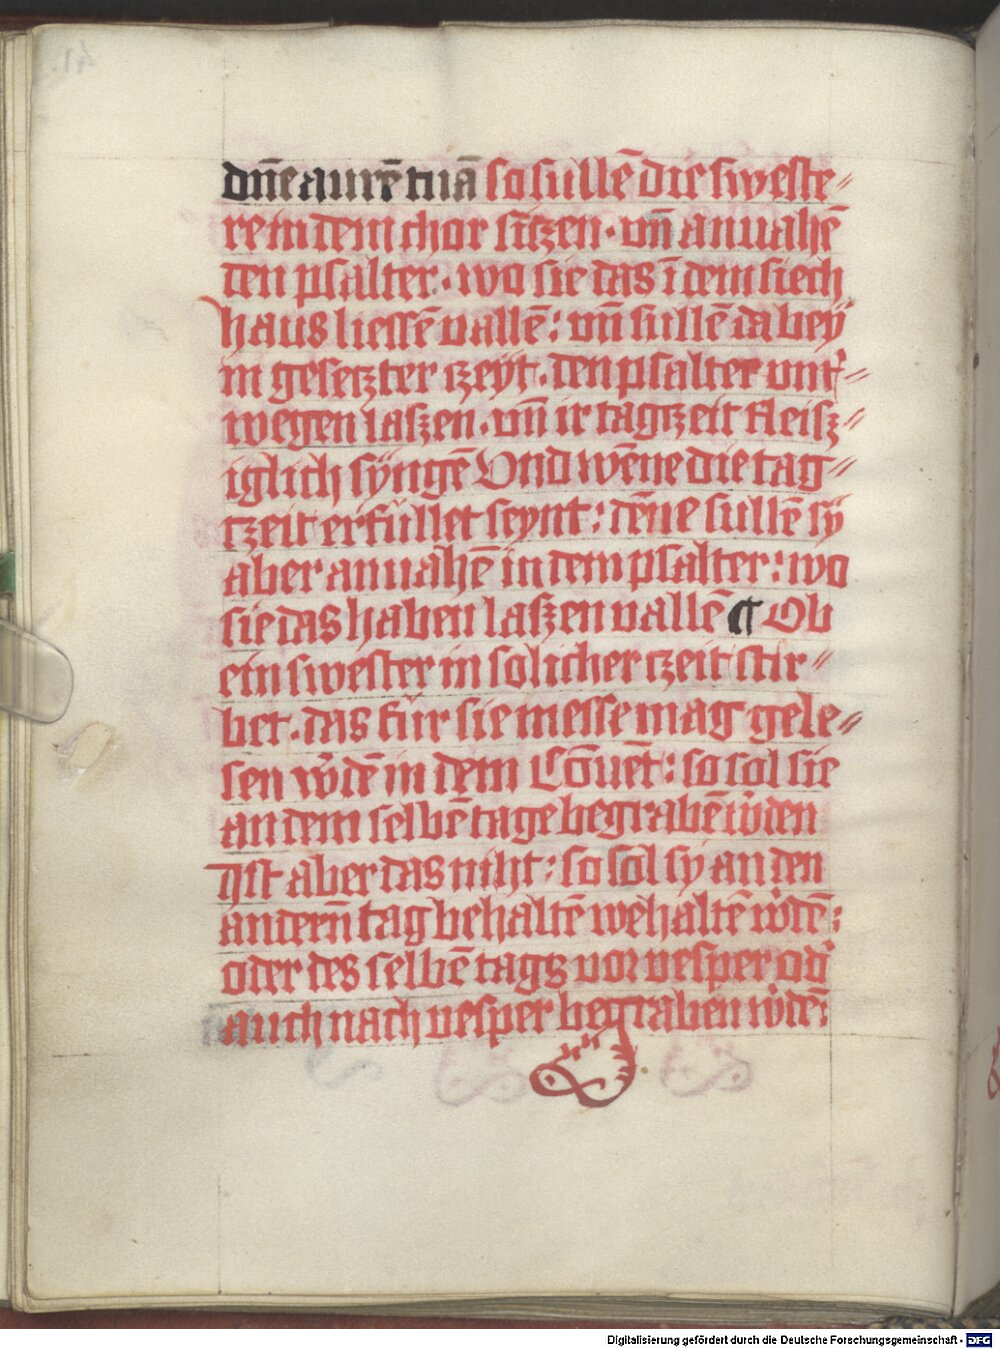 dn̄e aurē tuā so sullē die sweste⸗
re in dem chor sitzen · vn̄ anuahē
den psalter · wo sie das ī dem siech
haus liessē vallē : vn̄ sullē da bey
in gesetzter tzeyt · den psalter vnt᷑⸗
wegen laszen · vn̄ ir tagtzeit fleisz⸗
iglich syngē Vnd wēne die tag⸗
tzeit erfüllet seynt : dēne sullē sÿ
aber anuahē in dem psalter : wo
sie das haben laszen vallē ¶ Ob
ein swester in solicher tzeit stir⸗
bet · das für sie messe mag gele⸗
sen w᷑dē in dem Cōuēt : so sol sie
an dem selbē tage begrabē w᷑den
Ist aber das niht : so sol sy an den
andern̄ tag behaltē wehaltē w᷑dē :
oder des selbē tags vor vesper od᷑
auch nach vesper begraben w᷑dē :
41
Digitalisierung gefördert durch die Deutsche Forschungsgemeinschaft - DFG